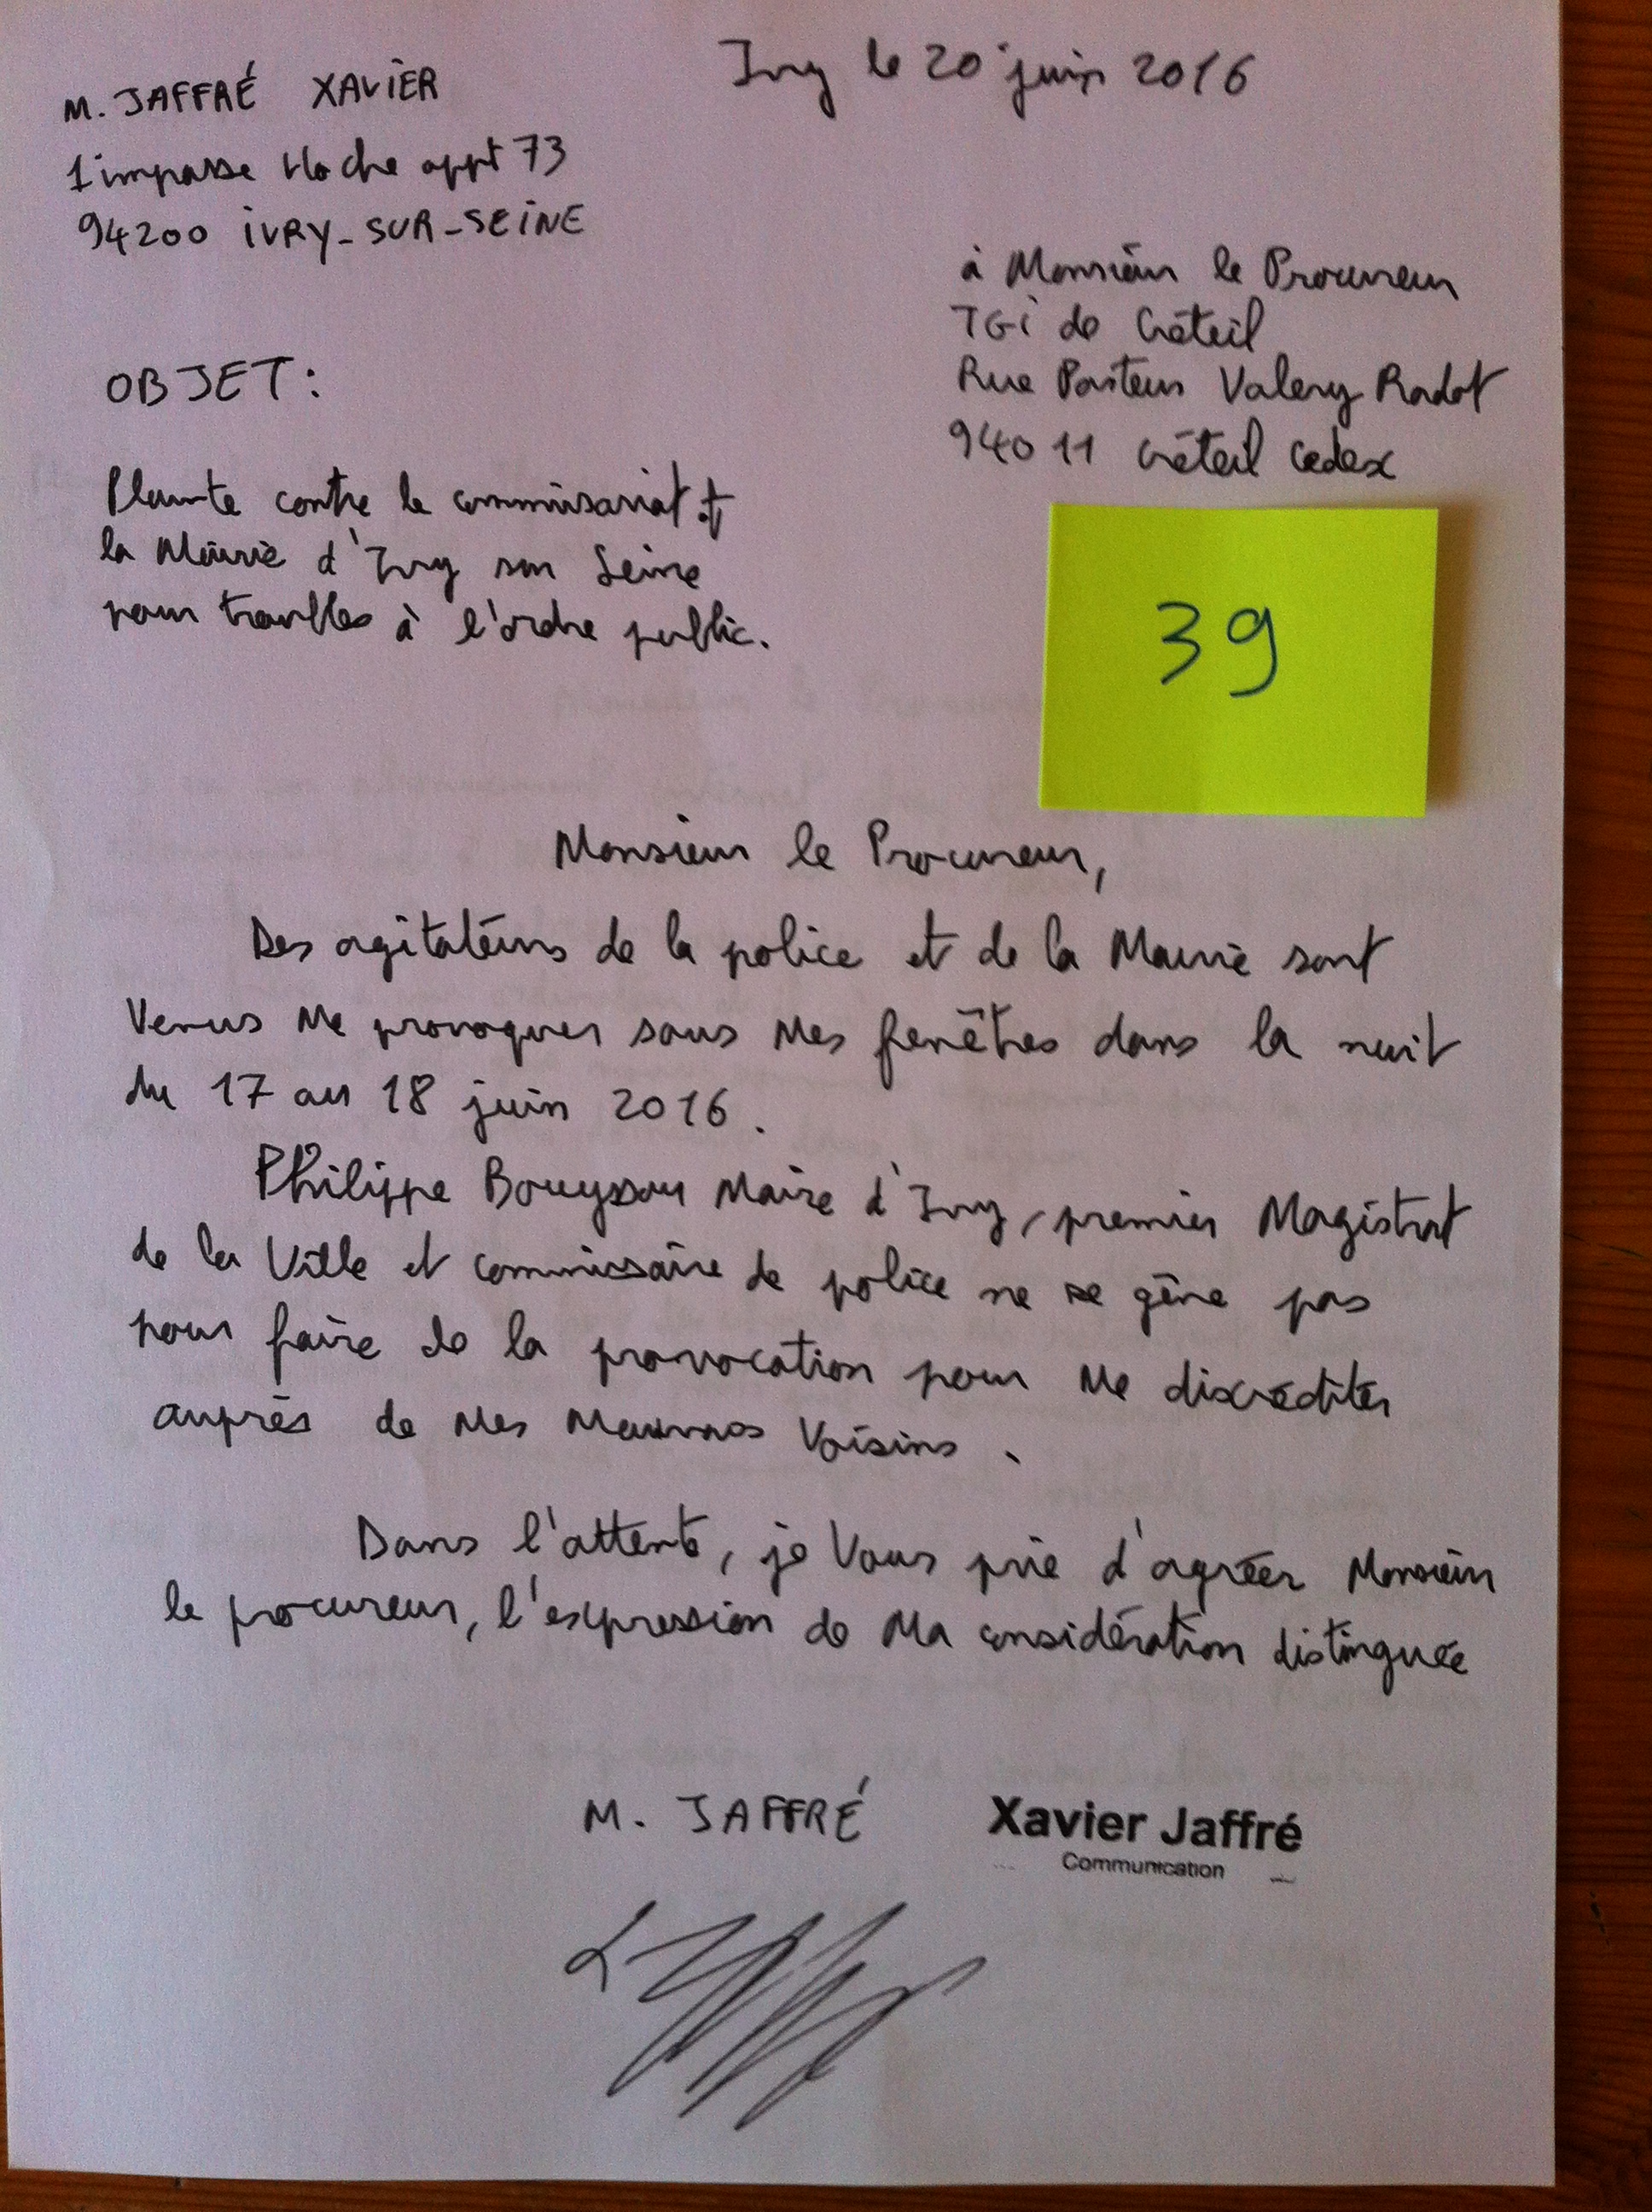 Ivry le 20 juin 2016
M. JAFFRÉ XAVIER
1 impasse Hoche appt 73
94200 IVRY-SUR-SEINE
à Monsieur le Procureur
TGI de Créteil
Rue Pasteur Valery Radot
94011 Créteil Cedex
OBJET :
Plainte contre le commissariat et
la Mairie d'Ivry sur Seine
pour troubles à l'ordre public.
39
Monsieur le Procureur,
Des agitateurs de la police et de la Mairie sont
Venus Me provoquer sous Mes fenêtres dans la nuit
du 17 au 18 juin 2016.
Philippe Bouyssou Maire d'Ivry, premier Magistrat
de la Ville et commissaire de police ne se gêne pas
pour faire de la provocation pour Me discréditer
auprès de Mes Voisins.
Dans l'attente, je Vous prie d'agréer Monsieur
le procureur, l'expression de Ma considération distinguée
M. JAFFRÉ
Xavier Jaffré
Communication